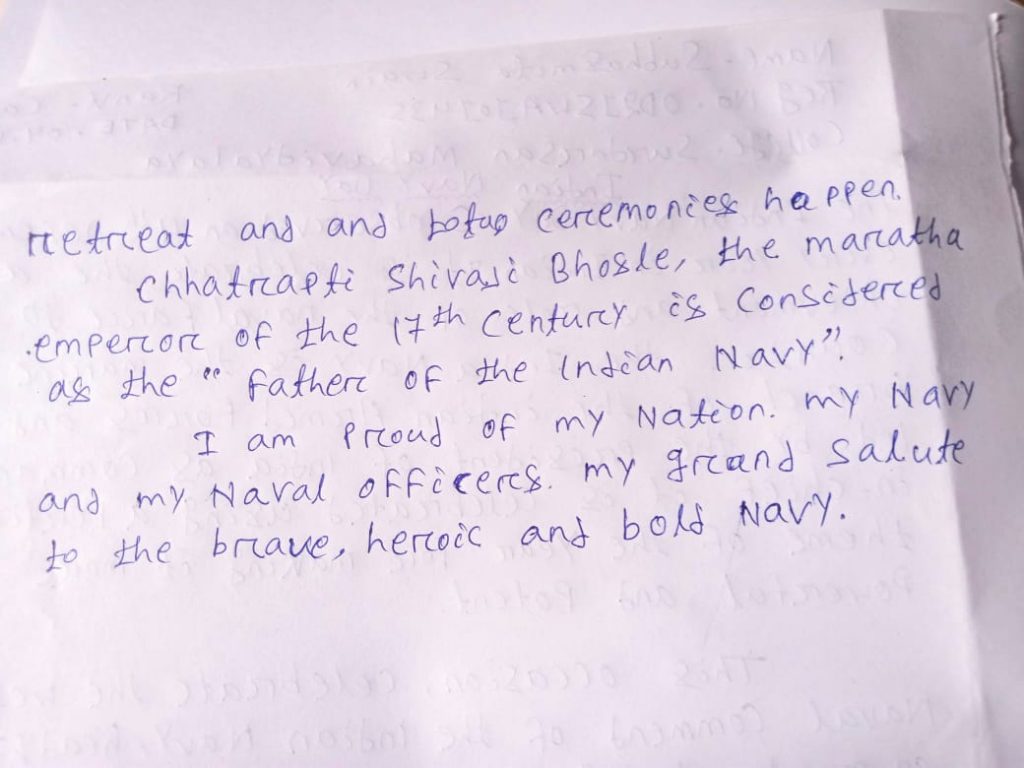 retreat and and ceremonies happen.
Chhatrapti Shivaji Bhosle, the maratha
emperor of the 17th Century is Considered
as the " father of the Indian Navy".
I am Proud of my Nation. my Navy
and my Naval officers. my grand salute
to the brave, heroic and bold Navy.